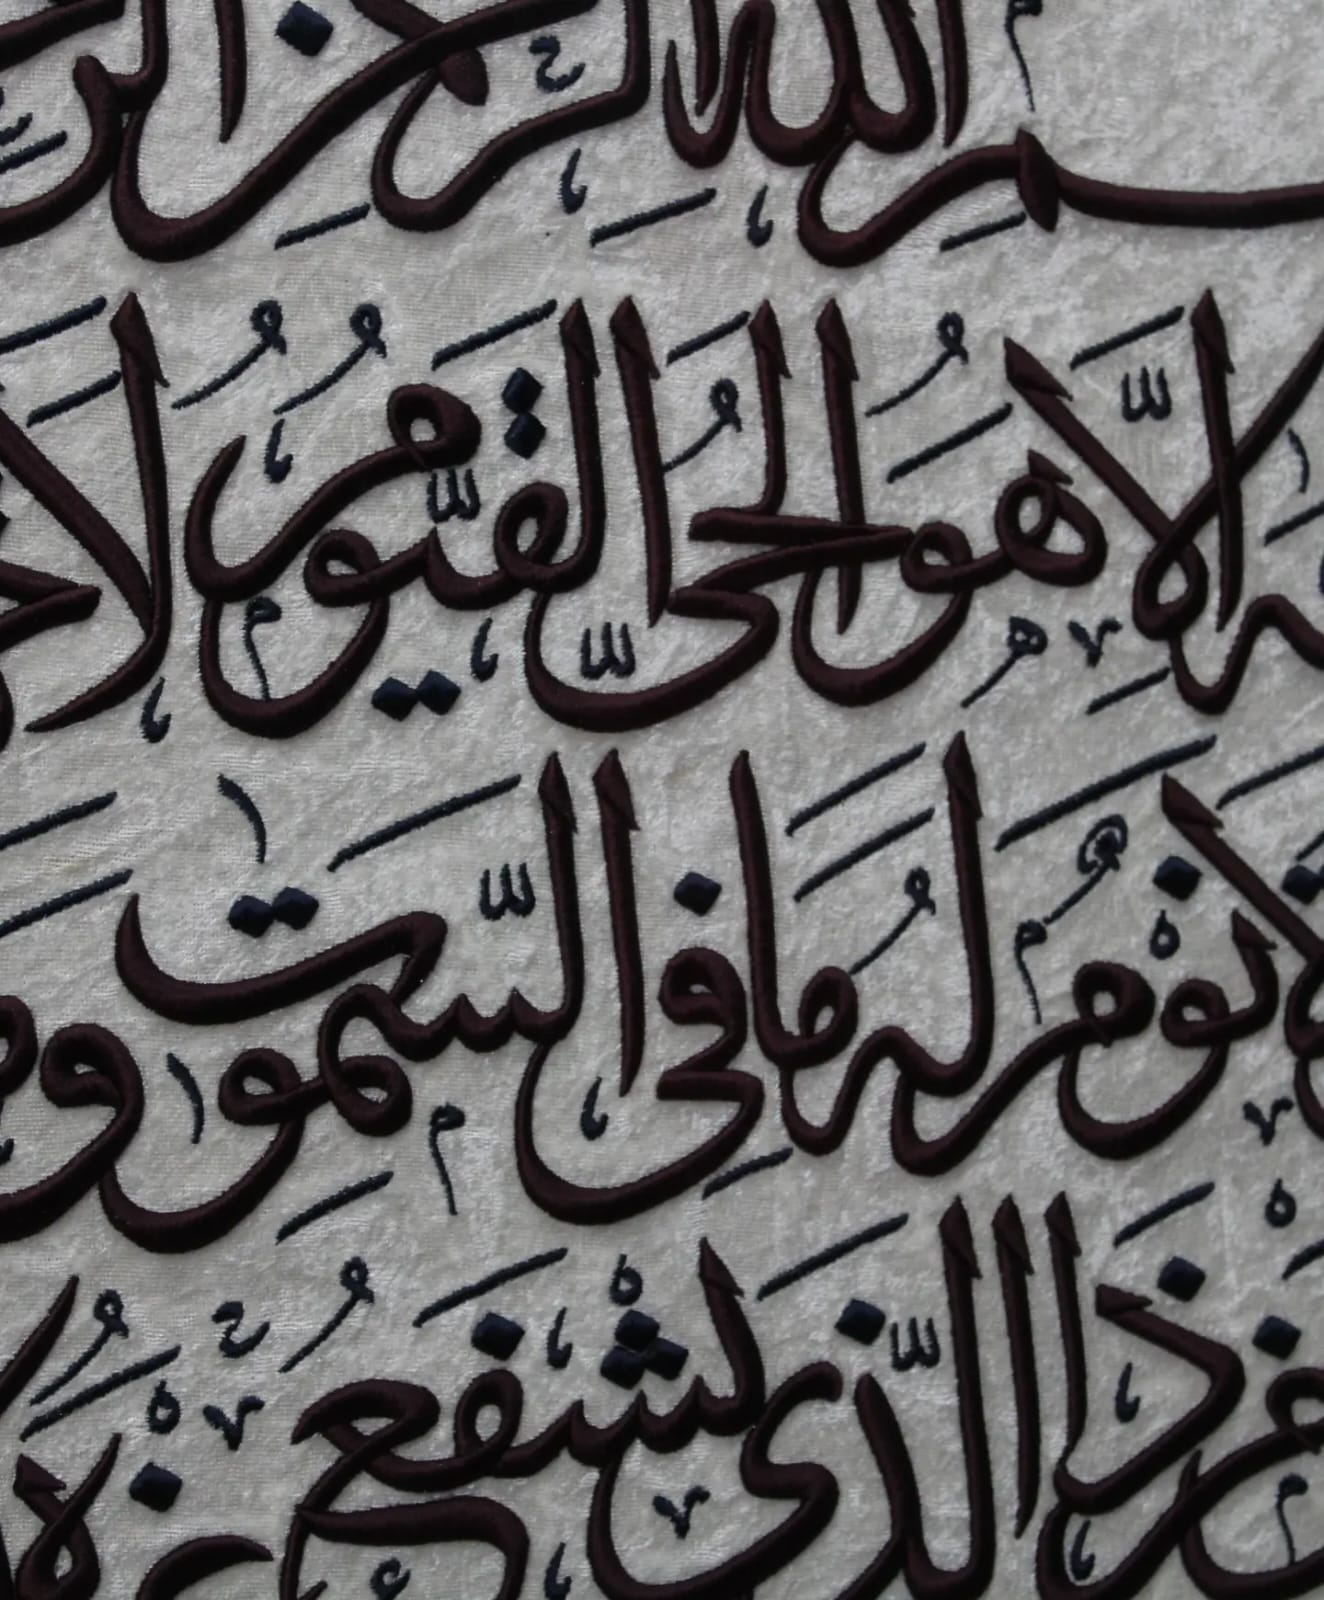 سم الله الرحمن الر
ه لا اله الا هو الحي القيوم لا
لا نوم له ما في السموت و
من ذا الذي يشفع